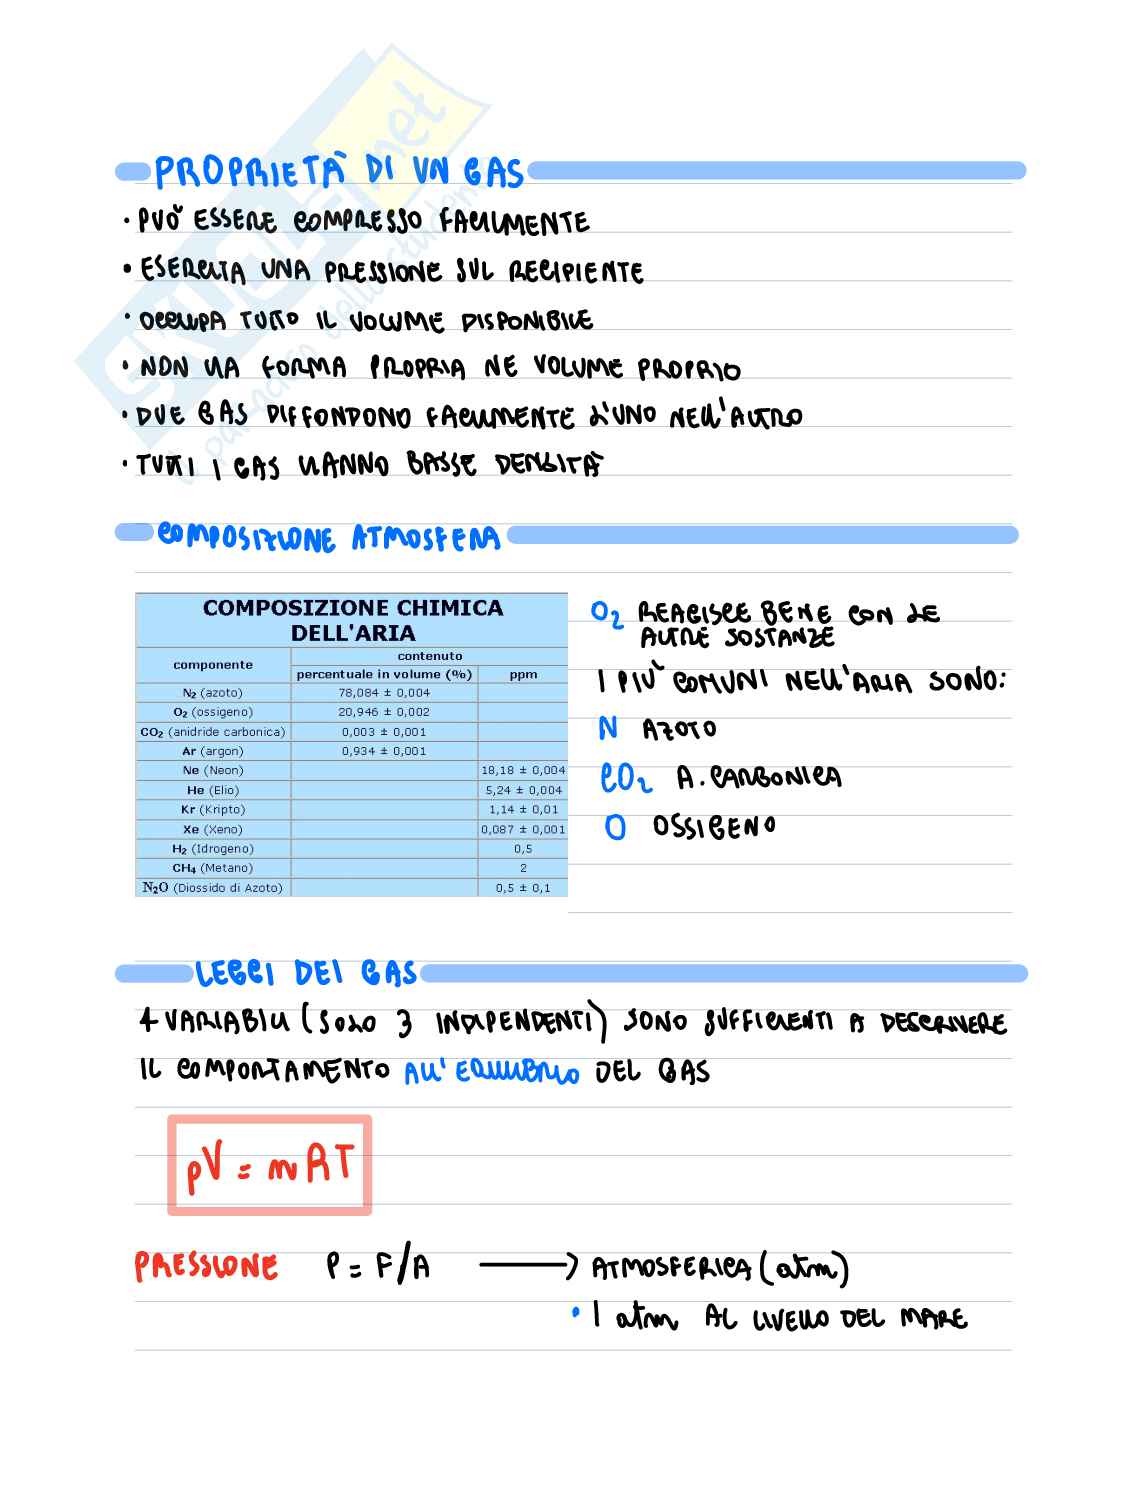 PROPRIETÀ DI UN GAS
• PUÒ ESSERE COMPRESSO FACILMENTE
• ESERCITA UNA PRESSIONE SUL RECIPIENTE
• OCCUPA TUTTO IL VOLUME DISPONIBILE
• NON HA FORMA PROPRIA NE VOLUME PROPRIO
• DUE GAS DIFFONDONO FACILMENTE L'UNO NELL'ALTRO
• TUTTI I GAS HANNO BASSE DENSITÀ
COMPOSIZIONE ATMOSFERA
COMPOSIZIONE CHIMICA
DELL'ARIA
componente contenuto
percentuale in volume (%) ppm
N₂ (azoto) 78,084 ± 0,004
O₂ (ossigeno) 20,946 ± 0,002
CO₂ (anidride carbonica) 0,003 ± 0,001
Ar (argon) 0,934 ± 0,001
Ne (Neon) 18,18 ± 0,004
He (Elio) 5,24 ± 0,004
Kr (Kripto) 1,14 ± 0,01
Xe (Xeno) 0,087 ± 0,001
H₂ (Idrogeno) 0,5
CH₄ (Metano) 2
N₂O (Diossido di Azoto) 0,5 ± 0,1
O₂ REAGISCE BENE CON LE
ALTRE SOSTANZE
I PIÙ COMUNI NELL'ARIA SONO:
N AZOTO
CO₂ A. CARBONICA
O OSSIGENO
LEGGI DEI GAS
4 VARIABILI (SOLO 3 INDIPENDENTI) SONO SUFFICIENTI A DESCRIVERE
IL COMPORTAMENTO ALL'EQUILIBRIO DEL GAS
pV = nRT
PRESSIONE P = F/A → ATMOSFERICA (atm)
• 1 atm AL LIVELLO DEL MARE
SKUOLA.net
il paradiso dello studente